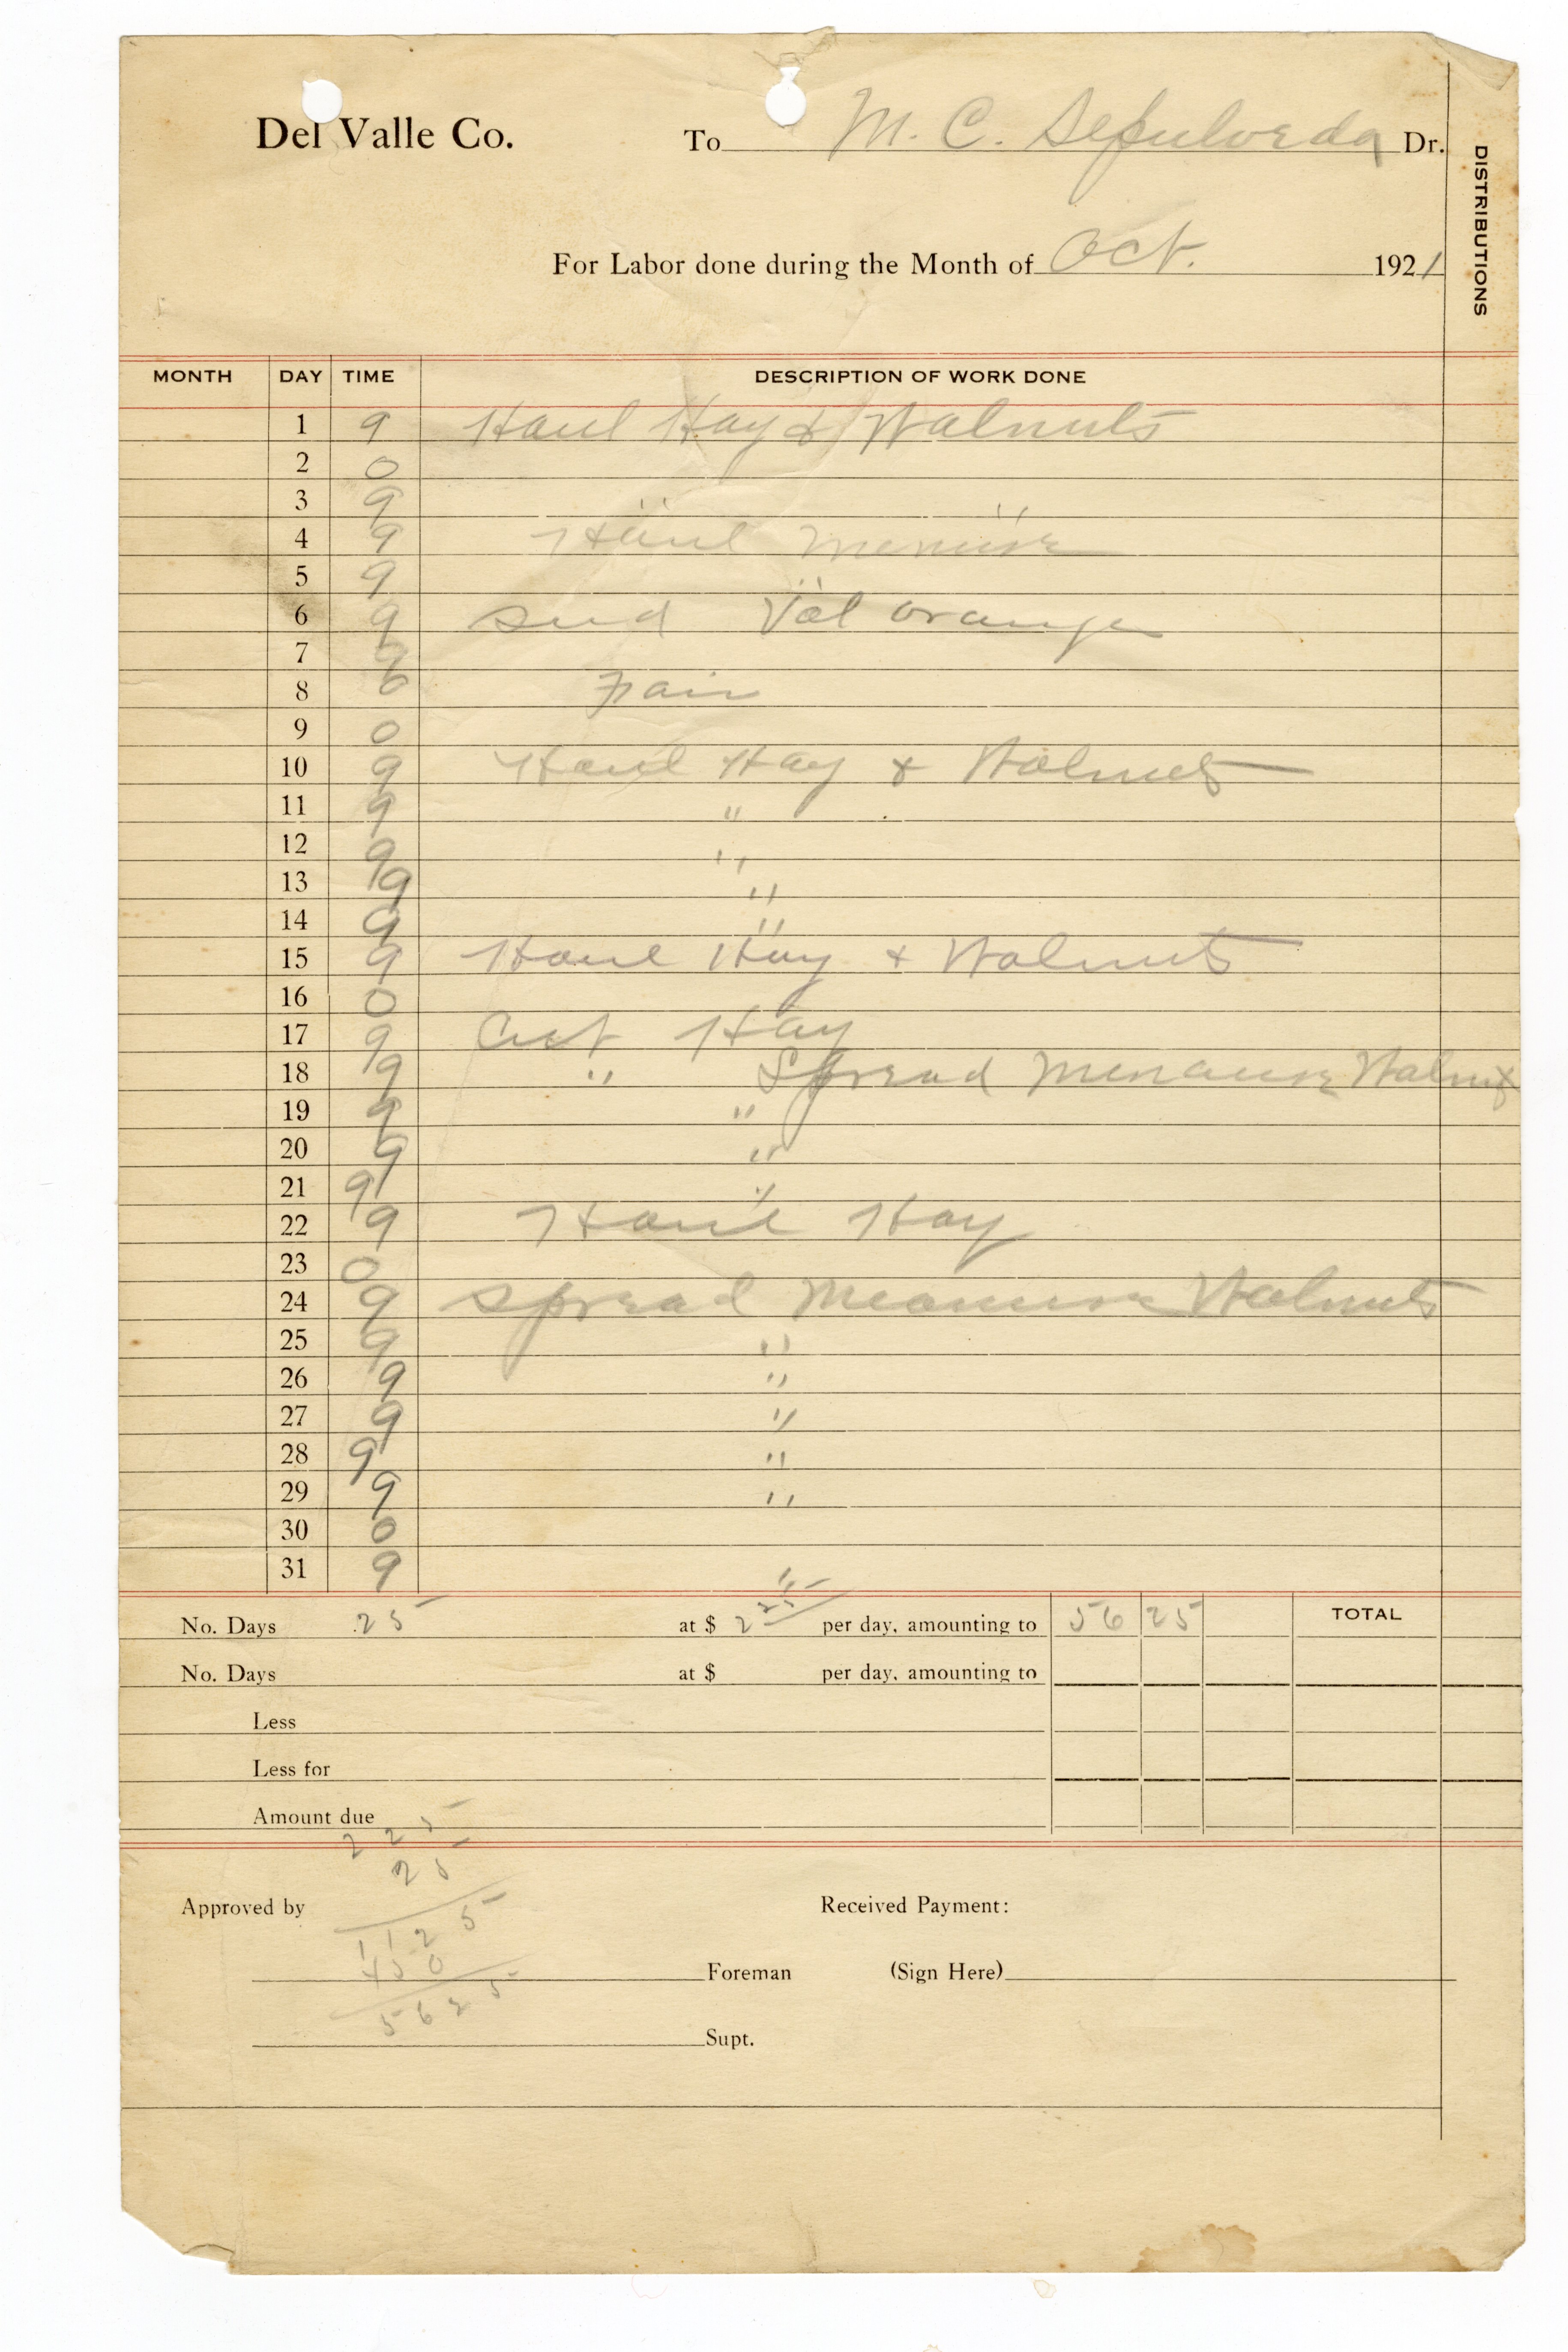 Del Valle Co. To M. C. Sepulveda Dr.
DISTRIBUTIONS
For Labor done during the Month of Oct. 1921
MONTH DAY TIME DESCRIPTION OF WORK DONE
1 9 Haul Hay & Walnuts
2 0
3 9 " "
4 9 Haul Menure
5 9 " "
6 9 Val orange
7 9
8 6 Fair
9 0
10 9 Haul Hay & Walnuts
11 9 "
12 9 "
13 9 "
14 9 "
15 9 Haul Hay & Walnuts
16 0
17 9 Cut Hay
18 9 " Spread Menaure Walnut
19 9 "
20 9 "
21 9 "
22 9 Haul Hay
23 0
24 9 Spread Meanure Walnuts
25 9 "
26 9 "
27 9 "
28 9 "
29 9 "
30 0
31 9 "
No. Days 25 at $ 2 25 per day, amounting to 56 25 TOTAL
No. Days at $ per day, amounting to
Less
Less for
Amount due
2 25
25
Approved by Received Payment:
1125
450
Foreman (Sign Here)
5625
Supt.